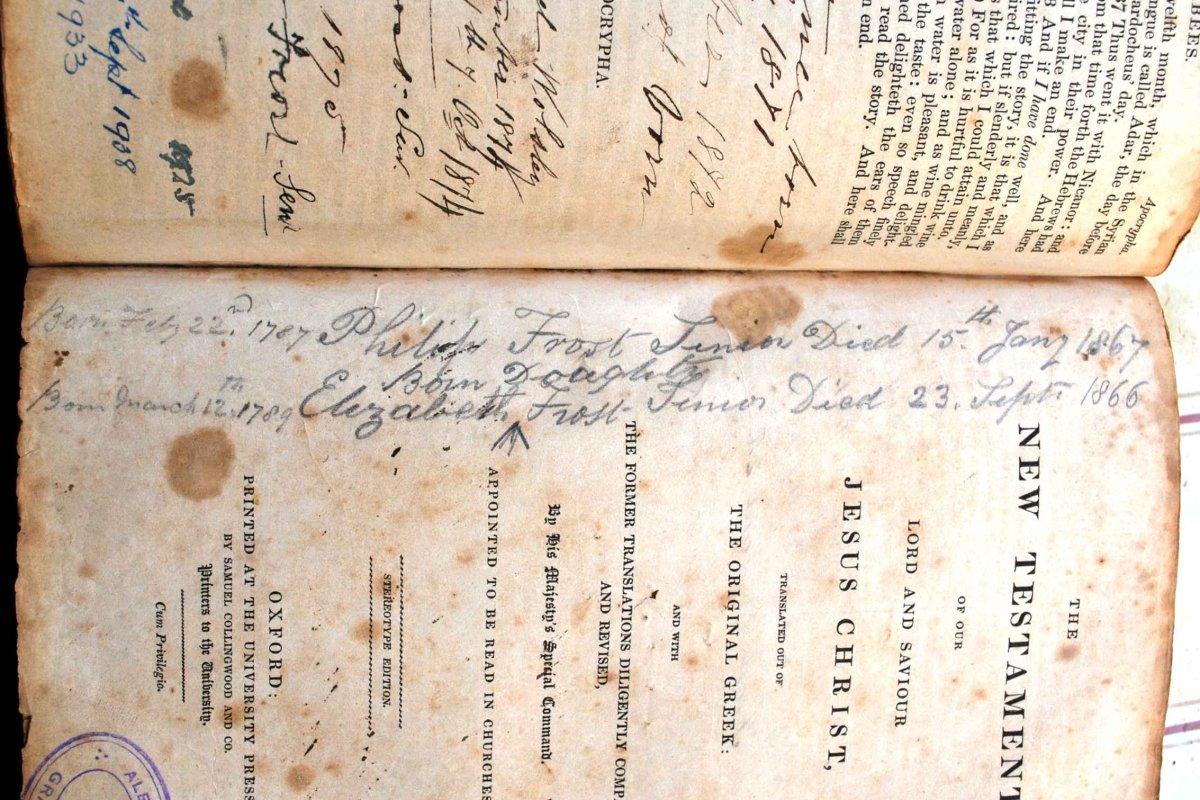 Apocrypha.
welfth month, which in the Syrian
ngue is called Adar, the day before
ardocheus' day.
37 Thus went it with Nicanor: and
om that time forth the Hebrews had
e city in their power. And here
ll I make an end.
8 And if I have done well, and as
itting the story, it is that which I
ired: but if slenderly and meanly,
s that which I could attain unto.
9 For as it is hurtful to drink wine
water alone; and as wine mingled
n water is pleasant, and delight
the taste: even so speech finely
ned delighteth the ears of them
read the story. And here shall
n end.
born
1881
1882
Born
OCRYPHA.
1874
7. Oct 1874
1895
Frost - Senr
1925
Sept 1908
1933
Born Feby 22nd. 1787 Philip Frost Senior Died 15th Jany 1867
Born Doughty
Born March 12th. 1789 Elizabeth Frost Senior Died 23. Septr 1866
THE
NEW TESTAMENT
OF OUR
LORD AND SAVIOUR
JESUS CHRIST,
TRANSLATED OUT OF
THE ORIGINAL GREEK:
AND WITH
THE FORMER TRANSLATIONS DILIGENTLY COMP
AND REVISED,
By His Majesty's Special Command.
APPOINTED TO BE READ IN CHURCHES
STEREOTYPE EDITION.
OXFORD:
PRINTED AT THE UNIVERSITY PRESS
BY SAMUEL COLLINGWOOD AND CO.
Printers to the University.
Cum Privilegio.
ALE
GR